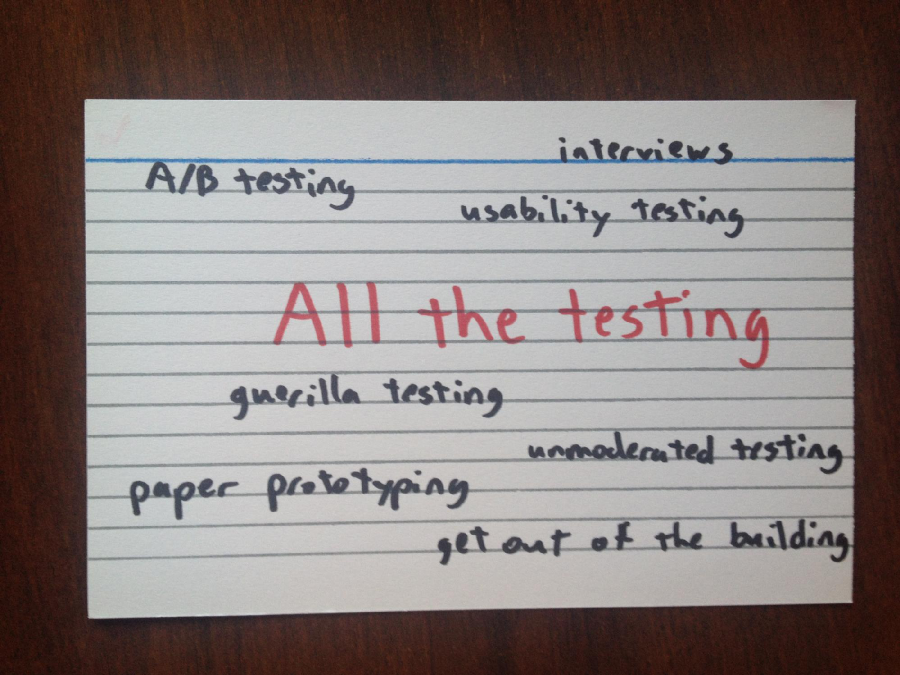 interviews
A/B testing
usability testing
All the testing
guerilla testing
unmoderated testing
paper prototyping
get out of the building